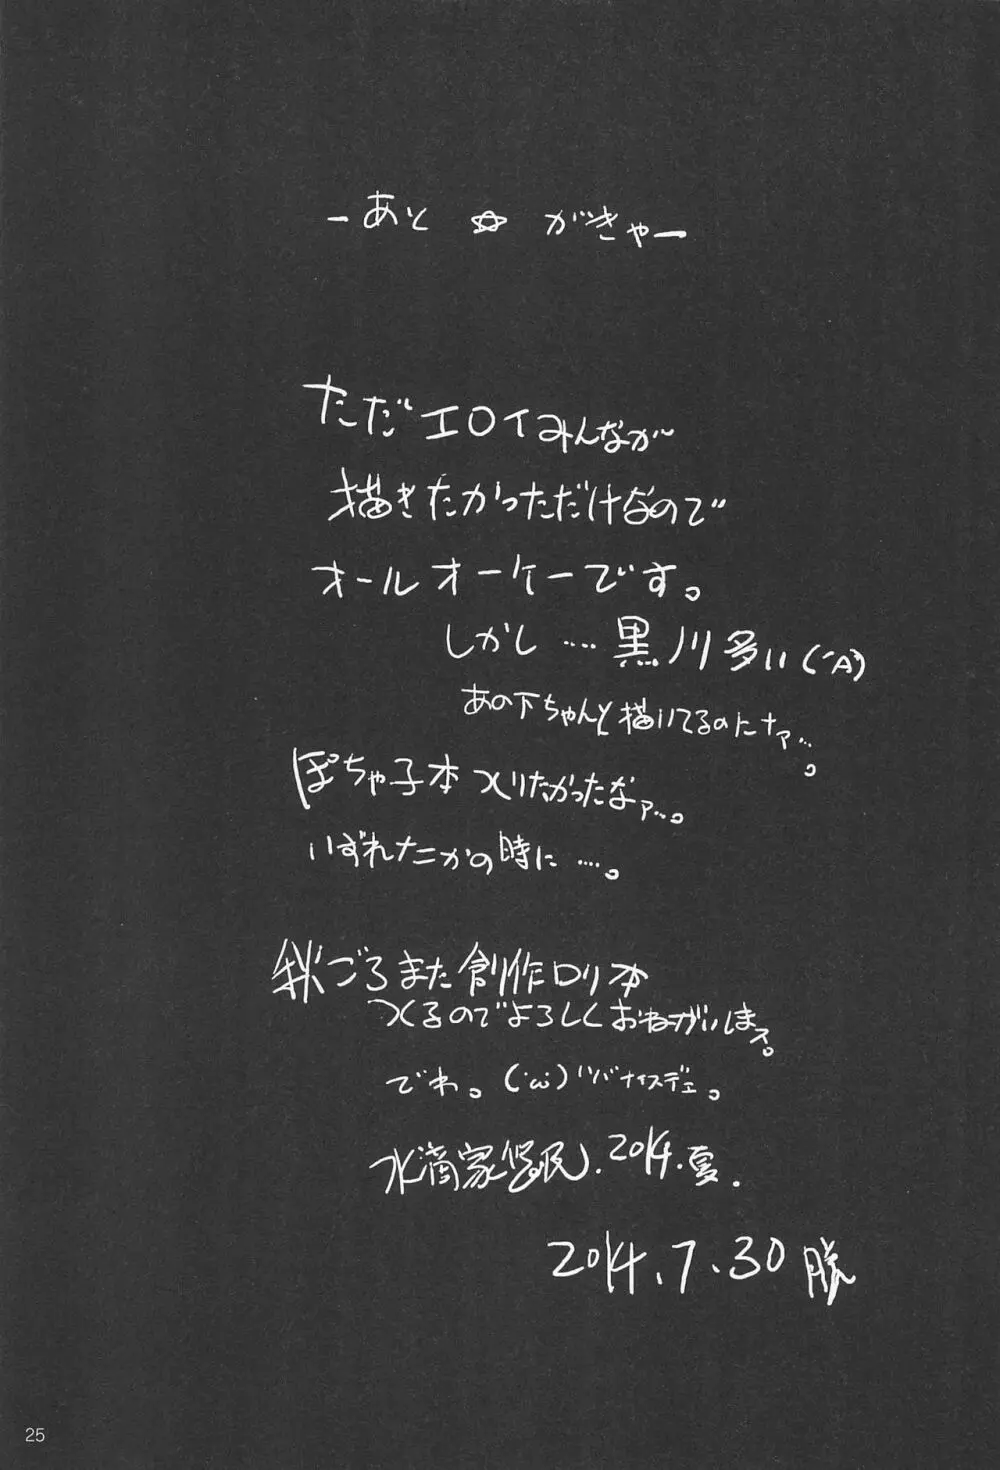 ーあと☆がきゃー
ただエロイみんなが
描きたかっただけなので
オールオーケーです。
しかし‥‥黒川多い(´A`)
あの下ちゃんと描いてるのにナァ…。
ぽちゃ子本つくりたかったなァ…。
いずれナニかの時に‥‥。
秋ごろまた創作ロリ本
つくるのでよろしくおねがいしまス。
でわ。(´ω`)ノシ
水滴家
2014.夏.
2014.7.30
25